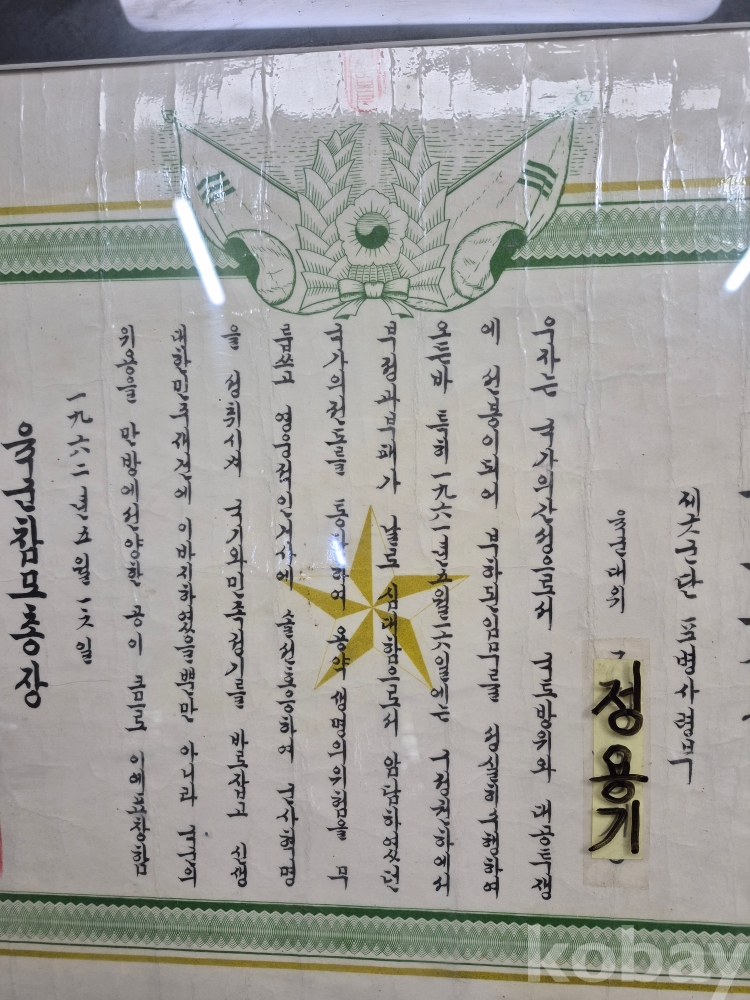 제六군단 포병사령부
육군대위 정용기
우자는 국가의간성으로서 국토방위와 대공투쟁
에 선봉이되어 부하된임무를 충실히수행하여
오든바 특히 一九六一년五월一六일에는 구정권하에서
부정과부패가 날로 심대함으로써 암담하였던
국가의전도를 통감하여 용약 생명의위험을 무
릅쓰고 영웅적인거사에 솔선호응하여 군사혁명
을 성취시켜 국가와민족정기를 바로잡고 신생
대한민국재건에 이바지하였을뿐만 아니라 국군의
위용을 만방에선양한 공이 큼으로 이에표창함
一九六二년五월一六일
육군참모총장
kobay